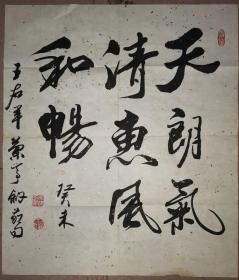 天朗氣
清惠風
和暢
癸未
王右軍蘭亭敘句